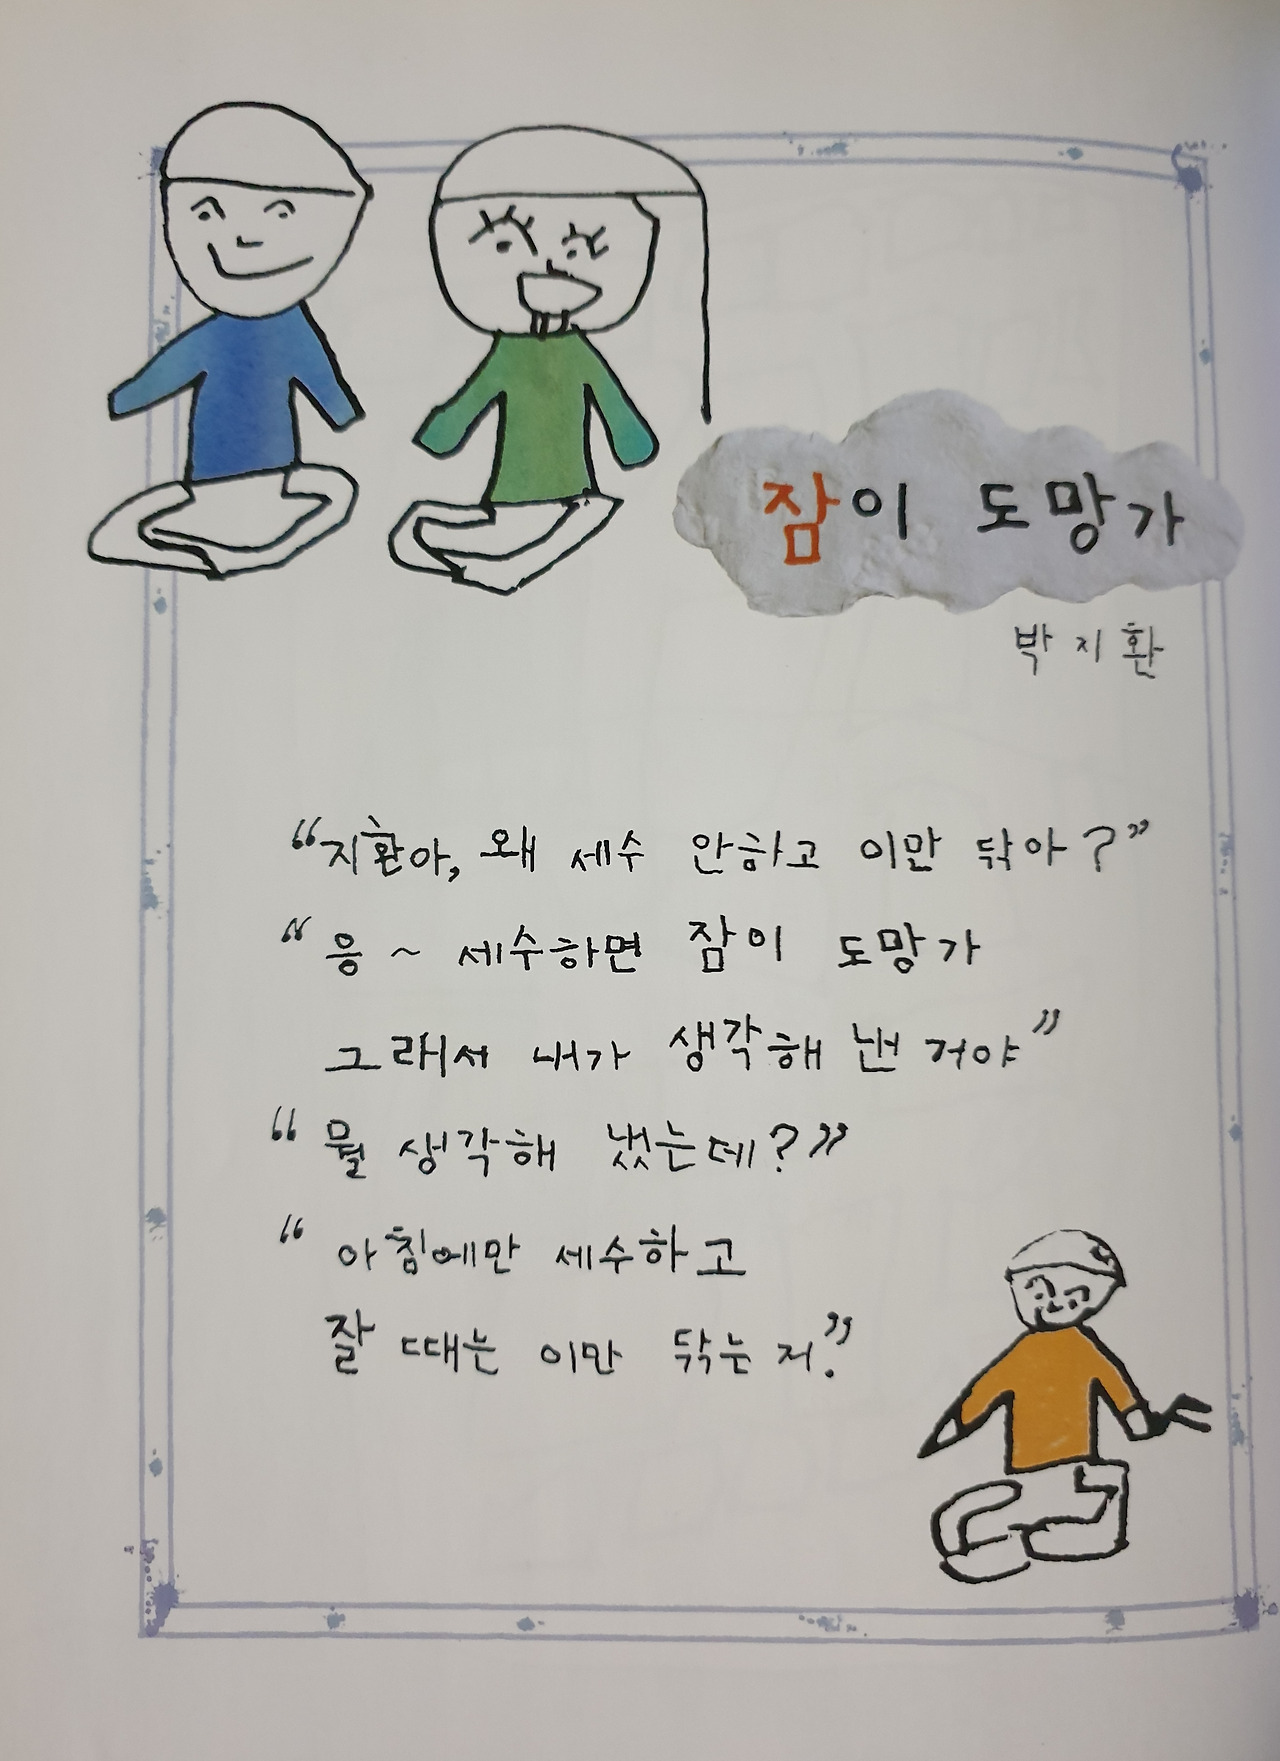 잠이 도망가
박지환
“지환아, 왜 세수 안하고 이만 닦아?”
“응~ 세수하면 잠이 도망가
그래서 내가 생각해 낸 거야”
“뭘 생각해 냈는데?”
“아침에만 세수하고
잘 때는 이만 닦는 거.”